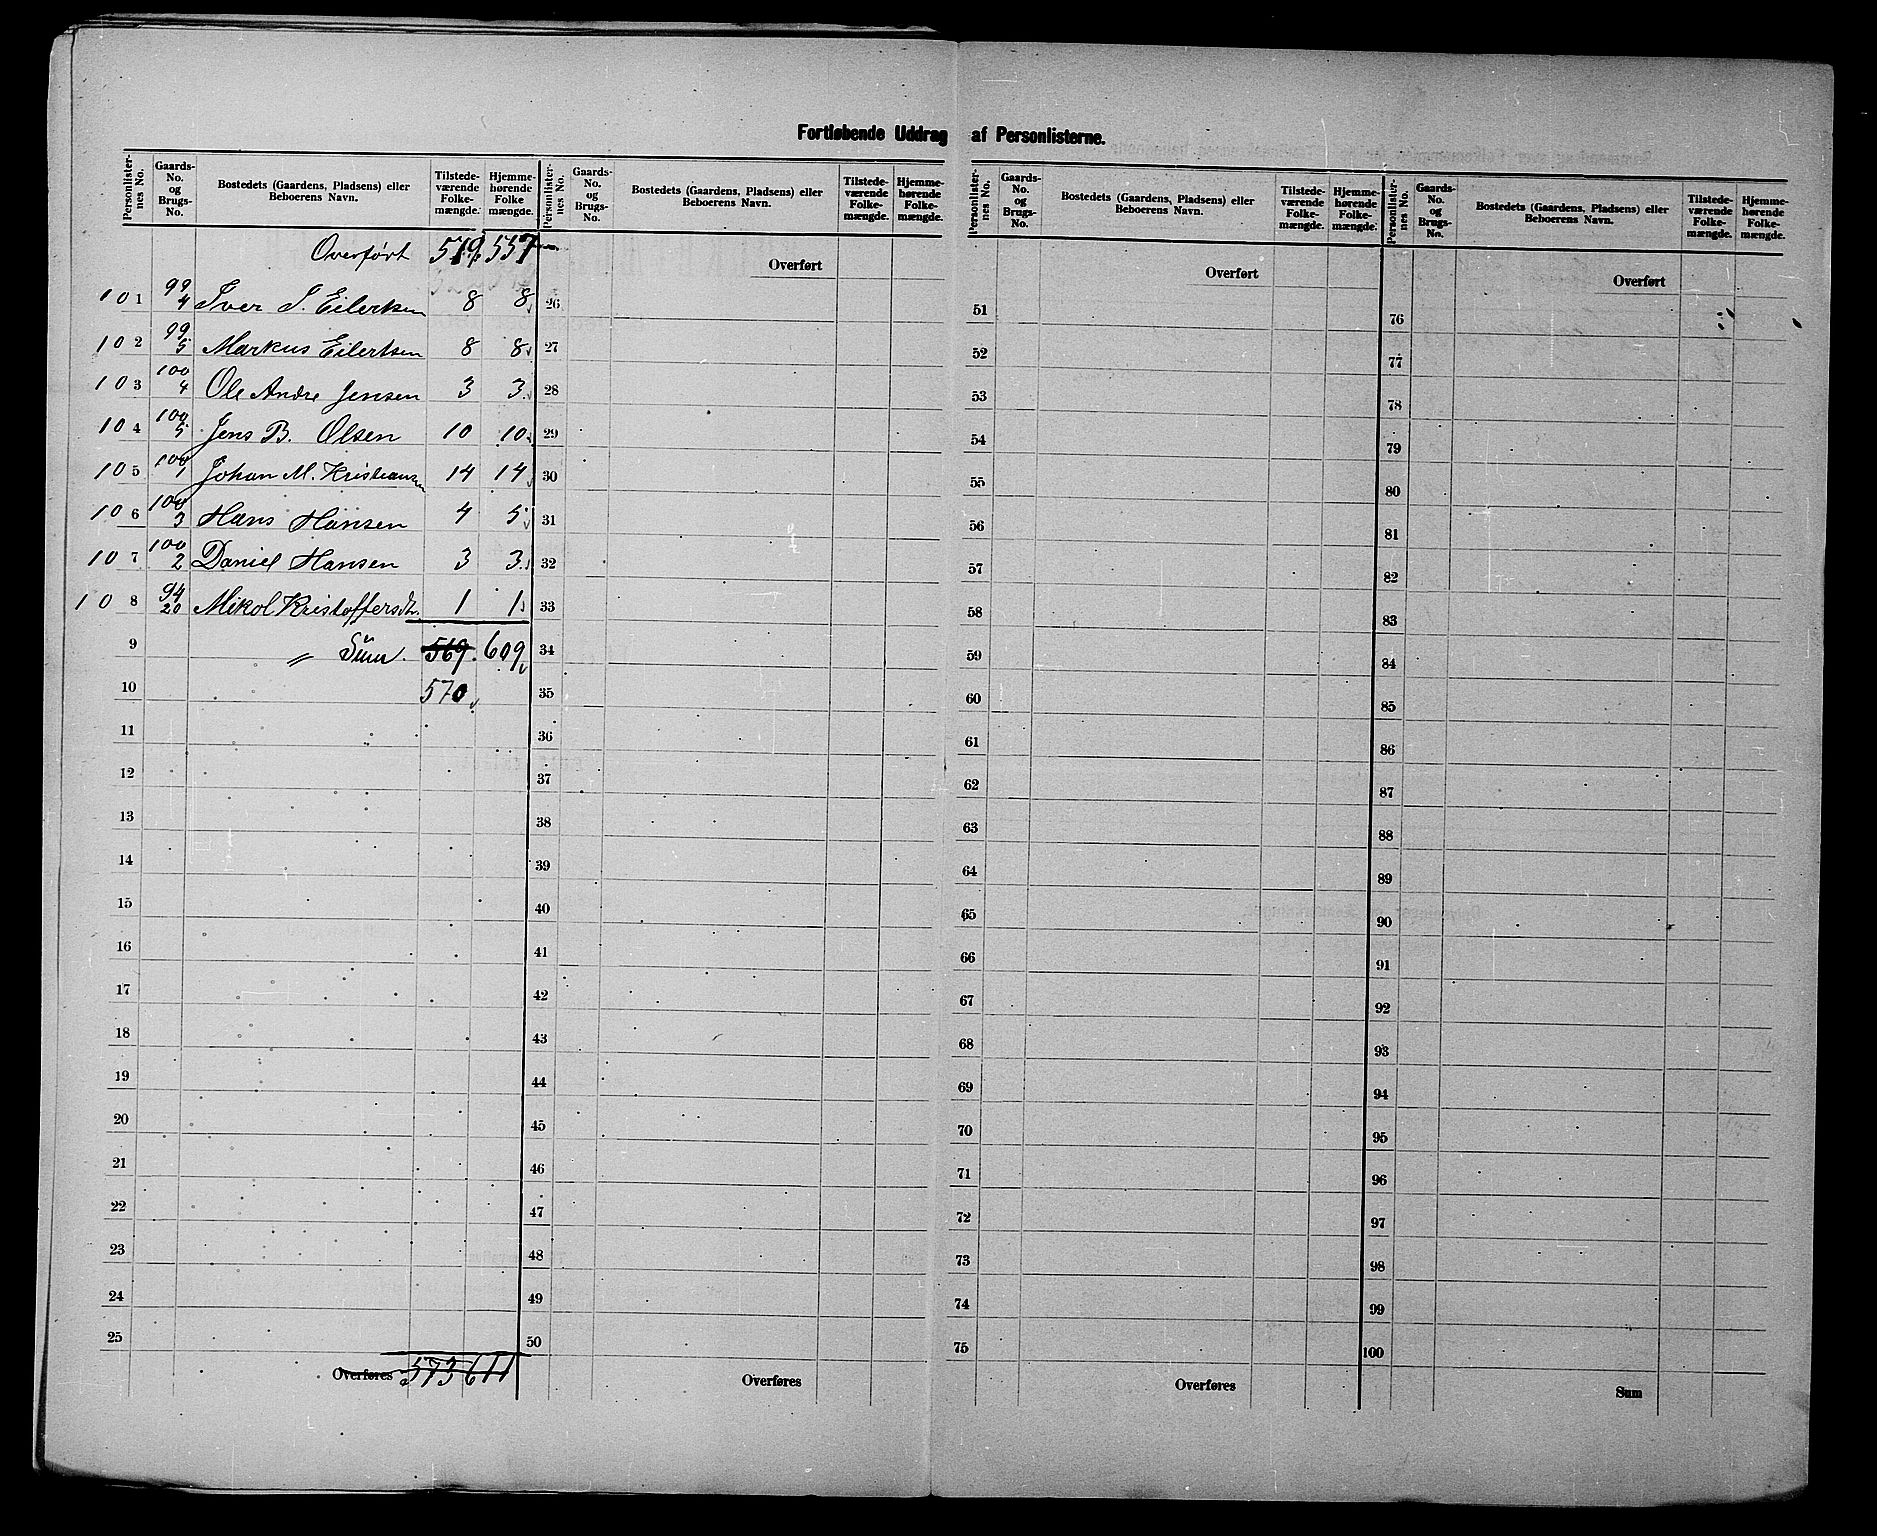 Fortløbende Uddrag af Personlisterne.
Personlister-nes No. | Gaards-No. og Brugs-No. | Bostedets (Gaardens, Pladsens) eller Beboerens Navn. | Tilstede-værende Folke-mængde. | Hjemme-hørende Folke mængde.
Overført 519 557
101 99/4 Iver J. Eilertsen 8 8
102 99/5 Markus Eilertsen 8 8
103 100/4 Ole Andre Jensen 3 3
104 100/5 Jens B. Olsen 10 10
105 100/1 Johan M. Kristiansen 14 14
106 100/3 Hans Hansen 4 5
107 100/2 Daniel Hansen 3 3
108 94/20 Mikol Kristoffersdtr. 1 1
9 " Sum. 569. 609
10 570
11
12
13
14
15
16
17
18
19
20
21
22
23
24
25
Overføres 573 611
Personlister-nes No. | Gaards-No. og Brugs-No. | Bostedets (Gaardens, Pladsens) eller Beboerens Navn. | Tilstede-værende Folke-mængde. | Hjemme-hørende Folke-mængde.
Overført
26
27
28
29
30
31
32
33
34
35
36
37
38
39
40
41
42
43
44
45
46
47
48
49
50
Overføres
Personlister-nes No. | Gaards-No. og Brugs-No. | Bostedets (Gaardens, Pladsens) eller Beboerens Navn. | Tilstede-værende Folke-mængde. | Hjemme-hørende Folke-mængde.
Overført
51
52
53
54
55
56
57
58
59
60
61
62
63
64
65
66
67
68
69
70
71
72
73
74
75
Overføres
Personlister-nes No. | Gaards-No. og Brugs-No. | Bostedets (Gaardens, Pladsens) eller Beboerens Navn. | Tilstede-værende Folke-mængde. | Hjemme-hørende Folke-mængde.
Overført
76
77
78
79
80
81
82
83
84
85
86
87
88
89
90
91
92
93
94
95
96
97
98
99
100
Sum